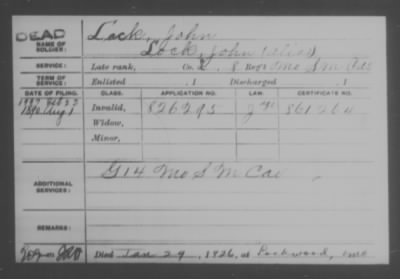 DEAD
NAME OF SOLDIER: Lock, John
Lock, John (alias)
SERVICE: Late rank, Co. L. 8 Reg't Mo S M Cav
TERM OF SERVICE: Enlisted , 1 Discharged , 1
DATE OF FILING. CLASS. APPLICATION NO. LAW. CERTIFICATE NO.
1890 Aug 1 Invalid, 826293 861264
Widow,
Minor,
ADDITIONAL SERVICES: G 14 Mo S M Cav
REMARKS:
Died Jan 29, 1926, at Lockwood, Mo